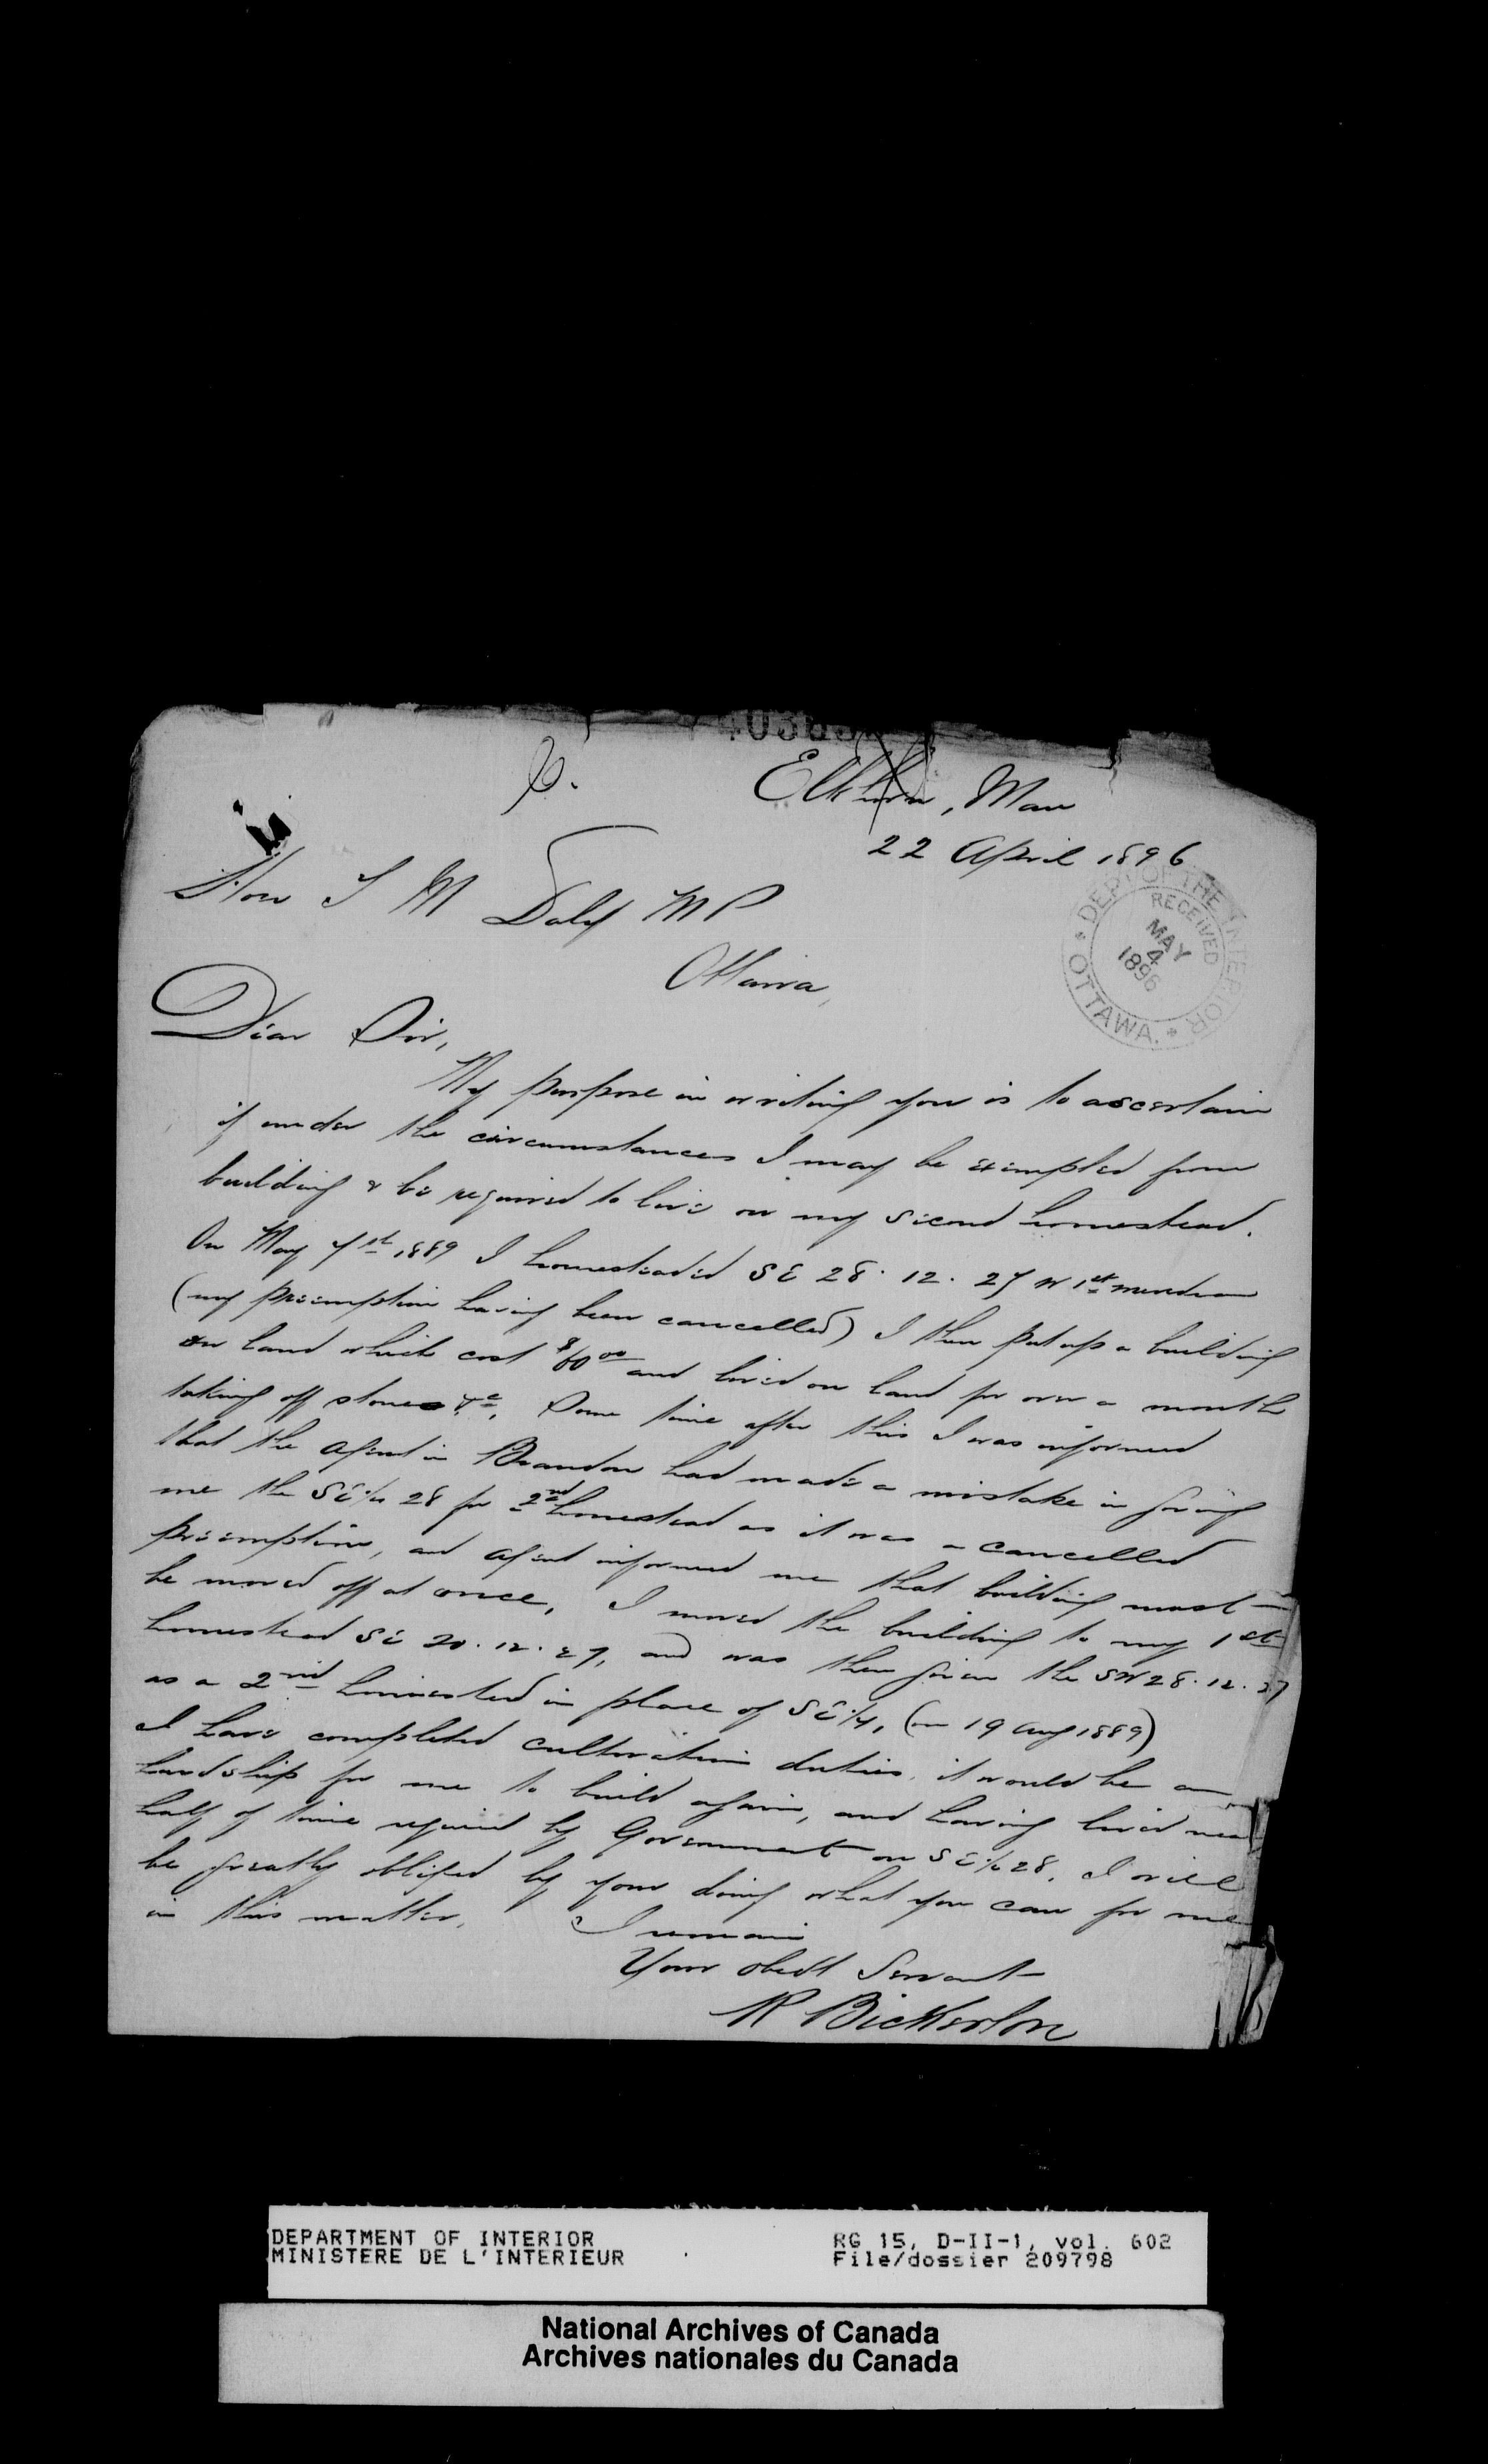 Elkhorn, Man
22 April 1896
Hon T M Daly M P
Ottawa,
DEPT OF THE INTERIOR
RECEIVED
MAY
4
1896
OTTAWA.
Dear Sir,
My purpose in writing you is to ascertain
if under the circumstances I may be exempted from
building & be required to live on my second homestead.
On May 7th 1889 I homesteaded SE 28. 12. 27 W 1st meridian
(my preemption having been cancelled) I then put up a building
on land which cost $60 00 and lived on land for over a month
taking off stones &c, Some time after this I was informed
that the Agent in Brandon had made a mistake in giving
me the SE 1/4 28 for 2nd homestead as it was a cancelled
preemption, and agent informed me that building must
be moved off at once, I moved the building to my 1st
homestead SE 20. 12. 27, and was then given the SW 28. 12. 27
as a 2nd homestead in place of SE 1/4, (on 19 Aug 1889)
I have completed cultivation duties, it would be a
hardship for me to build again, and having lived near
half of time required by Government on SE 1/4 28, I will
be greatly obliged by your doing what you can for me
in this matter, I remain
Your obedt Servant
R Bickerton
DEPARTMENT OF INTERIOR
MINISTERE DE L'INTERIEUR
RG 15, D-II-1, vol. 602
File/dossier 209798
National Archives of Canada
Archives nationales du Canada